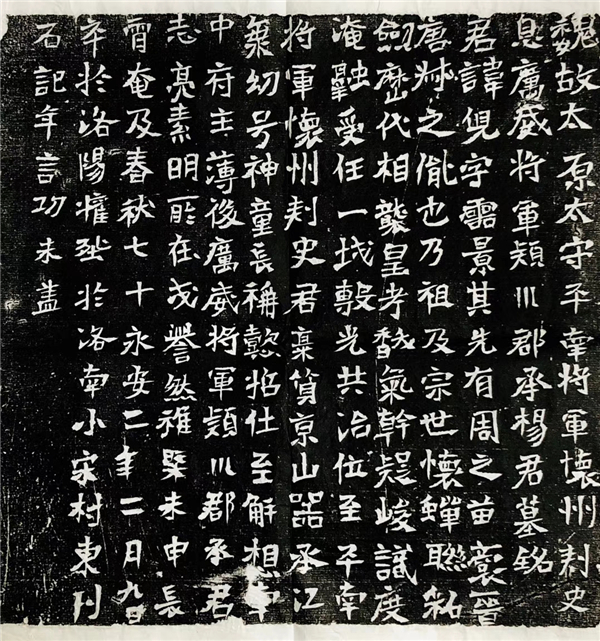 魏故太原太守平南將軍懷州刾史
息廣威將軍潁川郡丞楊君墓銘
君諱倪字靈景其先有周之苗裔晉
唐叔之胤也乃祖及宗世懷蟬聯
劒歷代相襲皇考馥氣幹峻識度
淹融受任一城轂光共治位至平南
將軍懷州刾史君稟質京山器承江
幼号神童長稱懿恪仕至解相事
中府主薄後廣威將軍潁川郡丞君
志亮素明所在茂譽然雅槩未申長
霄奄及春秋七十永安二年二月九日
卒於洛陽權於洛南小宋村東刊
石記年言功未盖